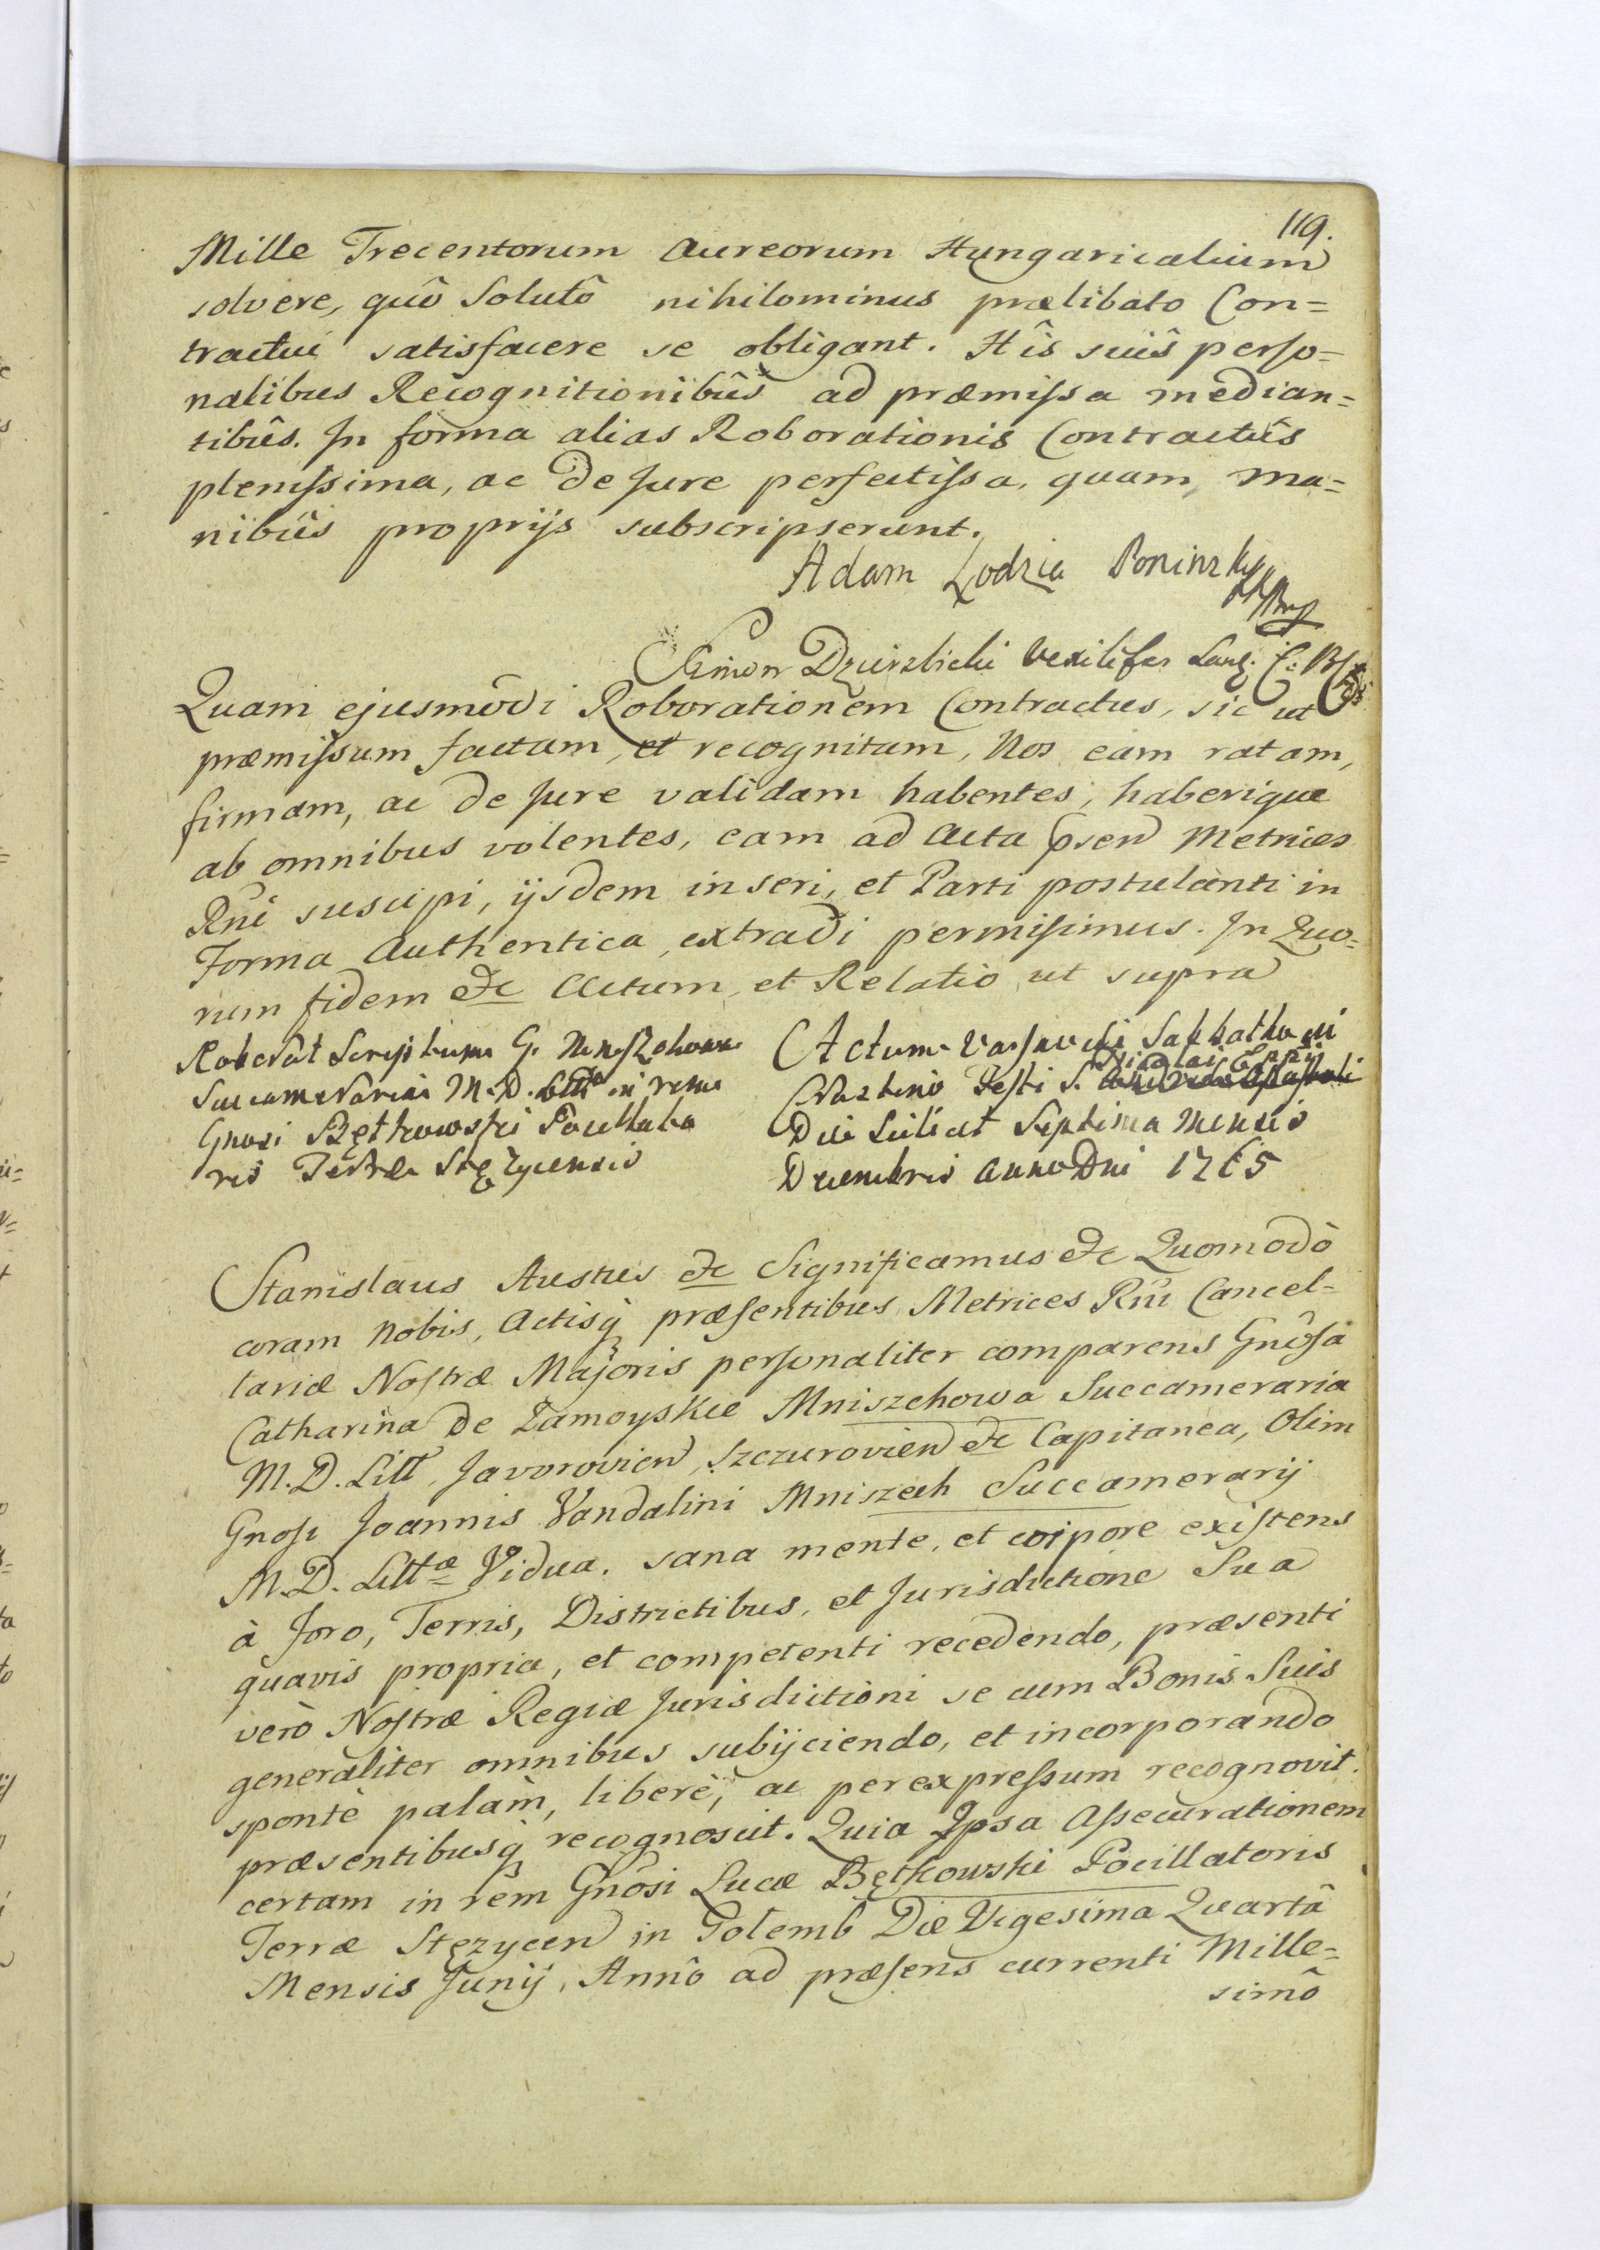 119.
Mille Trecentorum Aureorum Hungaricalium
solvere, quô Solutô nihilominus prælibato Con=
tractui satisfacere se obligant. Hîs suîs perso=
nalibus Recognitionibûs ad præmissa median=
tibûs. In forma alias Roborationis Contractûs
plenissima, ac De Jure perfectissa, quam, ma=
nibûs proprijs subscripserunt.
Adam Lodzia Poninsky
Simon Dzierzbicki Vexilifer Lanç.
Quam ejusmodi Roborationem Contractus, sic ut
præmissum factam, et recognitam, Nos eam ratam,
firmam, ac de Jure validam habentes, haberique
ab omnibus volentes, eam ad Acta præsen Metrices
Rni suscipi, ijsdem inseri, et Parti postulanti in
Forma Authentica, extradi permisimus. In Quo=
rum fidem &c Actum et Relatio ut supra
Roborat Scriptum G. Mniszchowa
Succameraria M. D. Litt in rem
Gnosi Bętkowski Pocillato
ris Terræ Stęzycensis
Actum Varsaviæ Sabbatho in
Crastino Festi S. Nicolai Eppi
Die Scilicet Septima Mensis
Decembris Anno Dni 1765
Stanislaus Austus &c Significamus &c Quomodò
coram Nobis, Actisq præsentibus Metrices Rni Cancel=
lariæ Nostræ Majoris personaliter comparens Gnôsa
Catharina De Zamoyskie Mniszchowa Succameraria
M. D. Litt, Javorovien, Szczurovien &c Capitanea, Olim
Gnosi Joannis Vandalini Mniszech Succamerarij
M. D. Littæ Vidua, sana mente, et corpore existens
à Foro, Terris, Districtibus, et Jurisdictione Sua
quavis propria, et competenti recedendo, præsenti
verò Nostræ Regiæ Jurisdictioni se cum Bonis Suis
generàliter omnibus subijciendo, et incorporando
spontè palàm, liberè, ac per expressum recognovit.
præsentibusq recognoscit. Quia Ipsa Assecurationem
certam in rem Gnôsi Lucæ Bętkowski Pocillatoris
Terræ Stęzycen in Golemb Die Vigesima Quartâ
Mensis Junij, Annô ad præsens currenti Mille=
simô